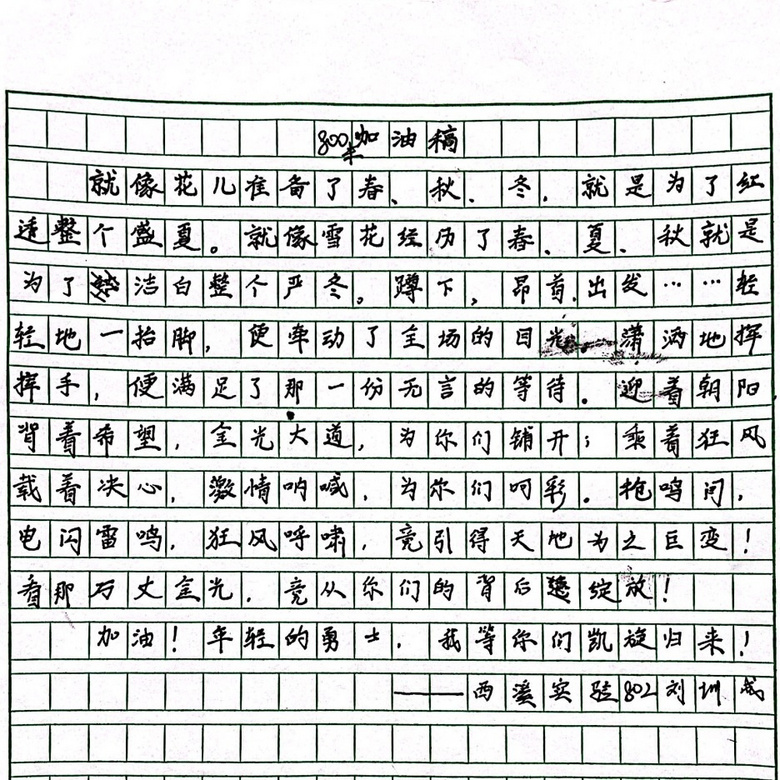 800米加油稿
就像花儿准备了春、秋、冬,就是为了红
透整个盛夏。就像雪花经历了春、夏、秋就是
为了洁白整个严冬。蹲下,昂首,出发……轻
轻地一抬脚,便牵动了全场的目光。潇洒地挥
挥手,便满足了那一份无言的等待。迎着朝阳
背着希望,金光大道,为你们铺开;乘着狂风
载着决心,激情呐喊,为你们呵彩。枪鸣间,
电闪雷鸣,狂风呼啸,竟引得天地为之巨变!
看那万丈金光,竟从你们的背后绽放!
加油!年轻的勇士,我等你们凯旋归来!
——西溪实验802刘圳